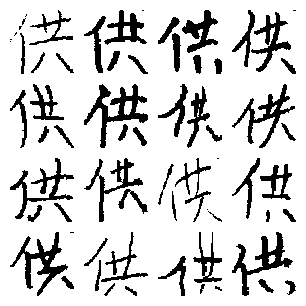 供供供供
供供供供
供供供供
供供供供